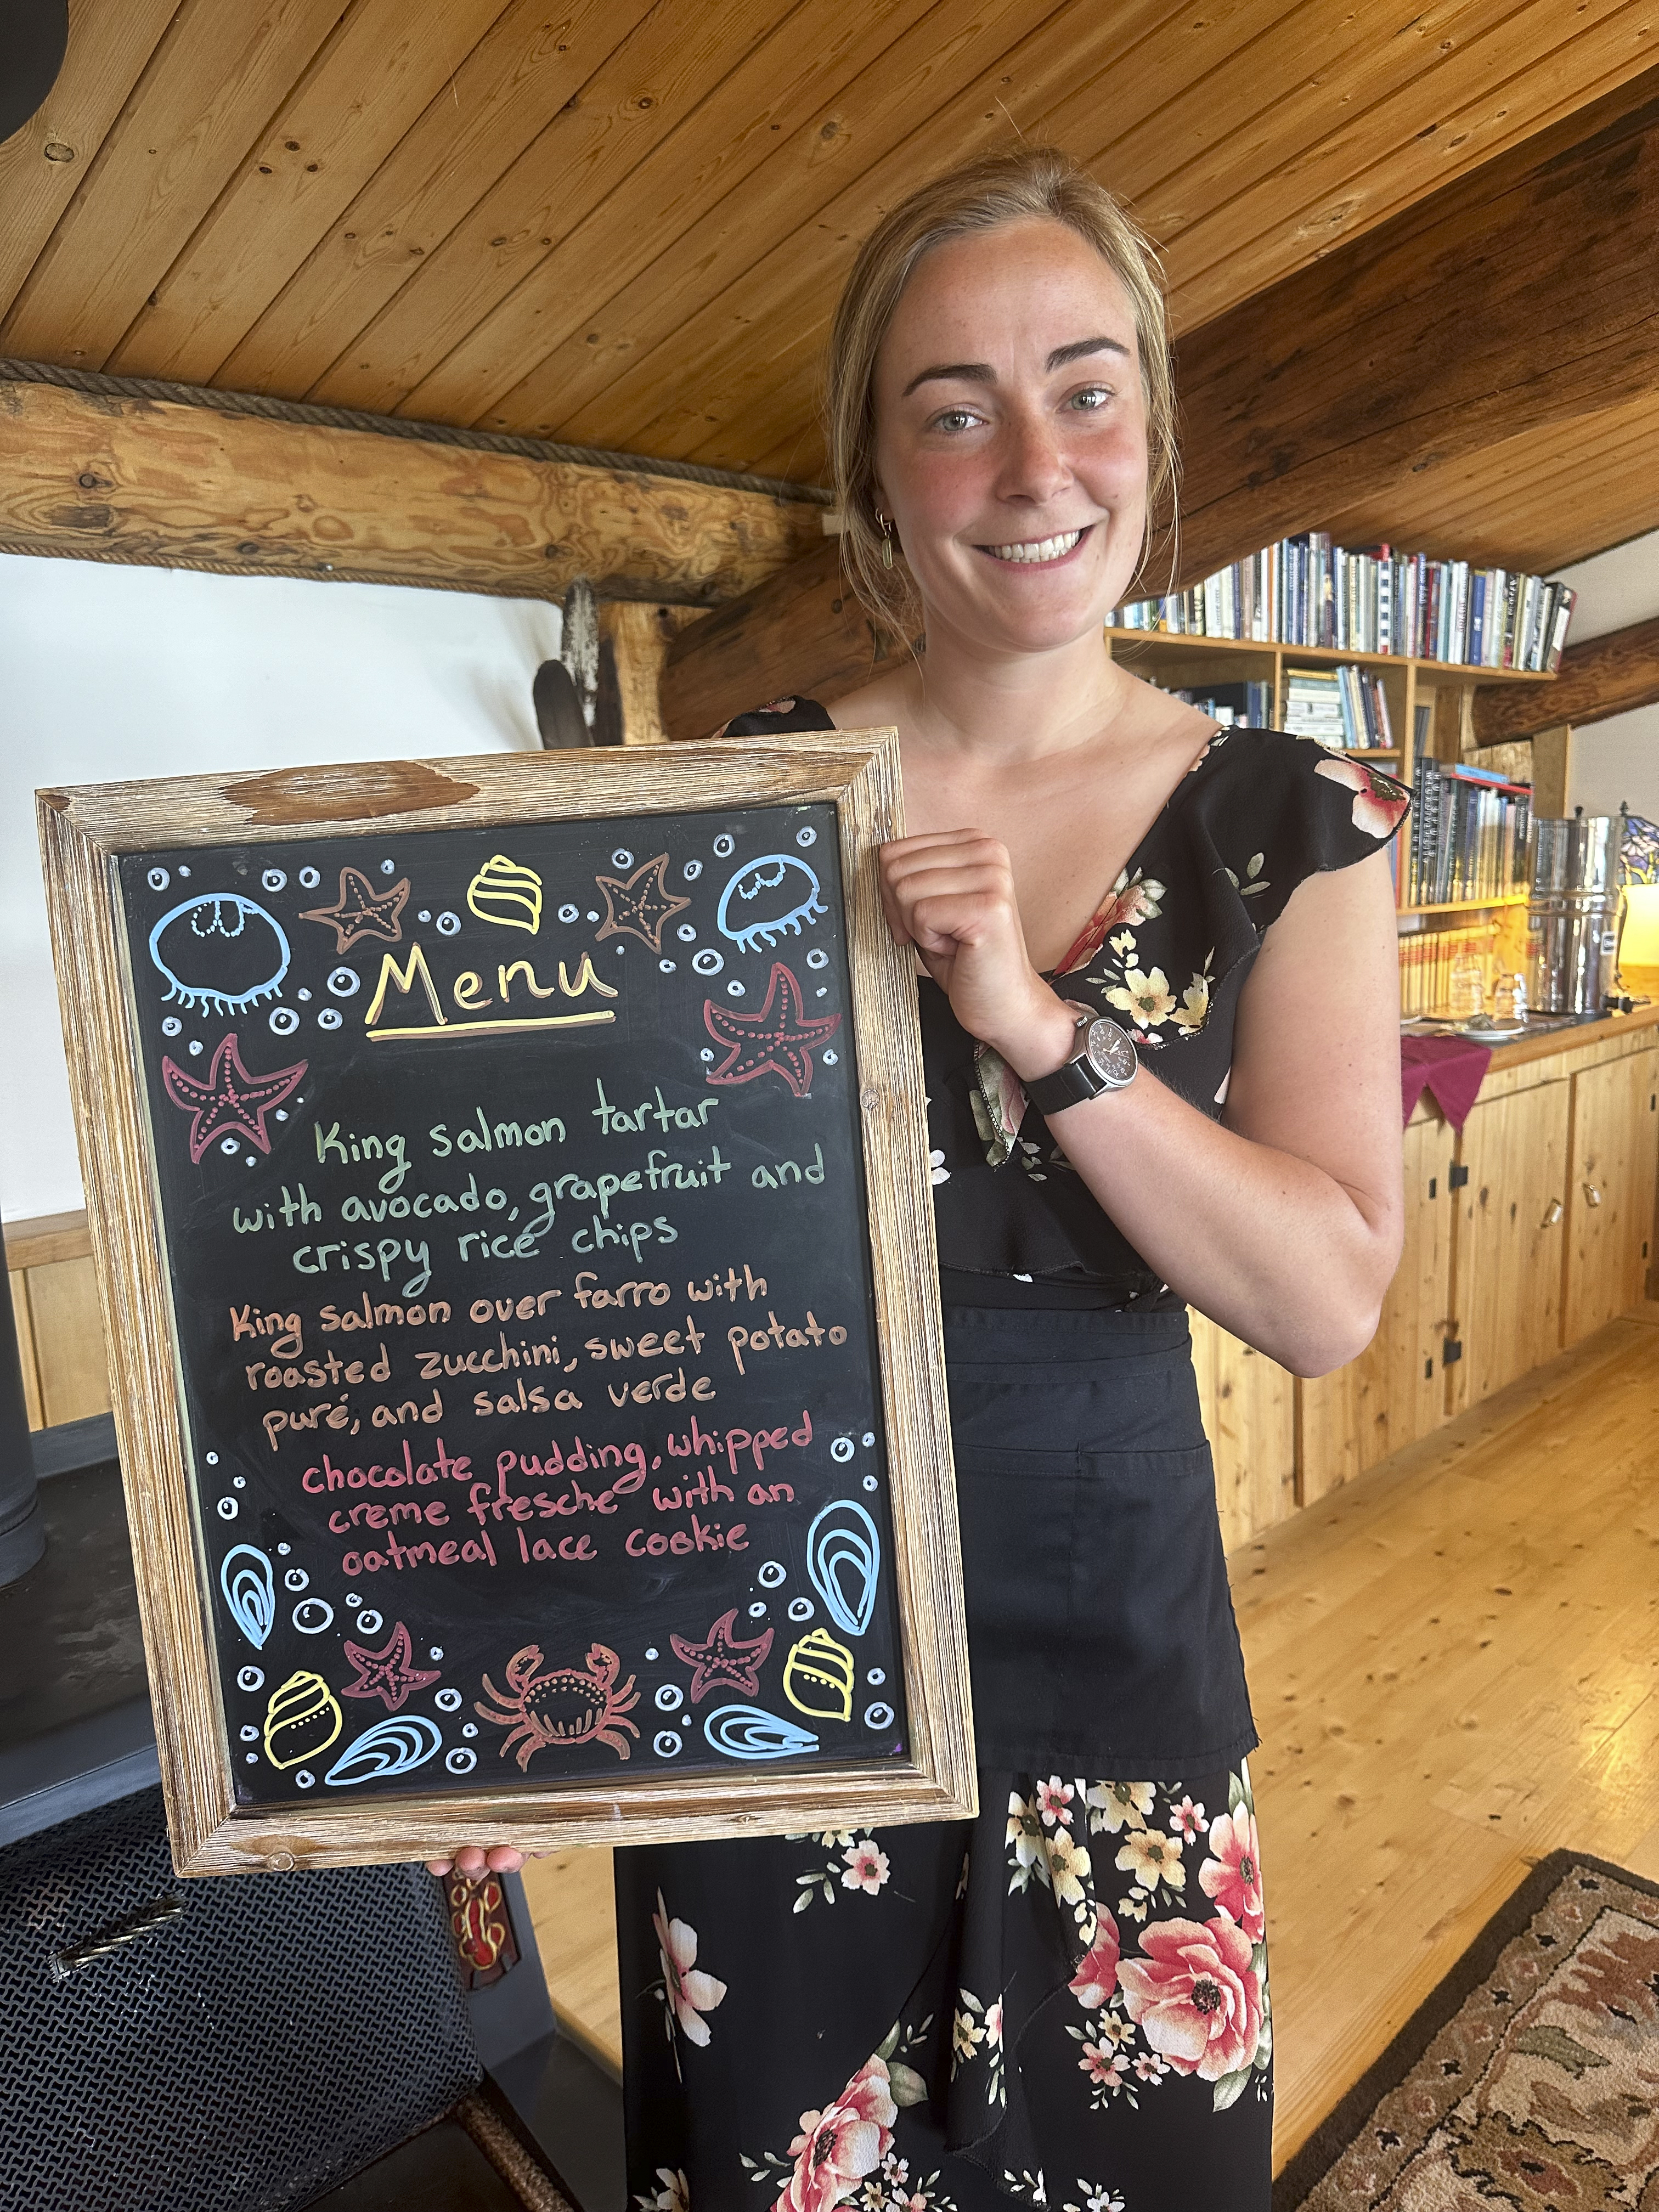 Menu
King salmon tartar
with avocado, grapefruit and
crispy rice chips
King salmon over farro with
roasted zucchini, sweet potato
puré, and salsa verde
chocolate pudding, whipped
creme fresche with an
oatmeal lace cookie